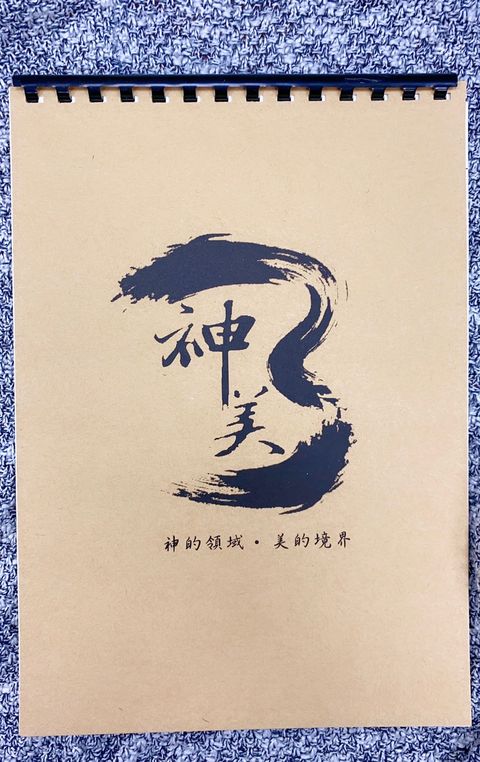 神
美
神的領域·美的境界